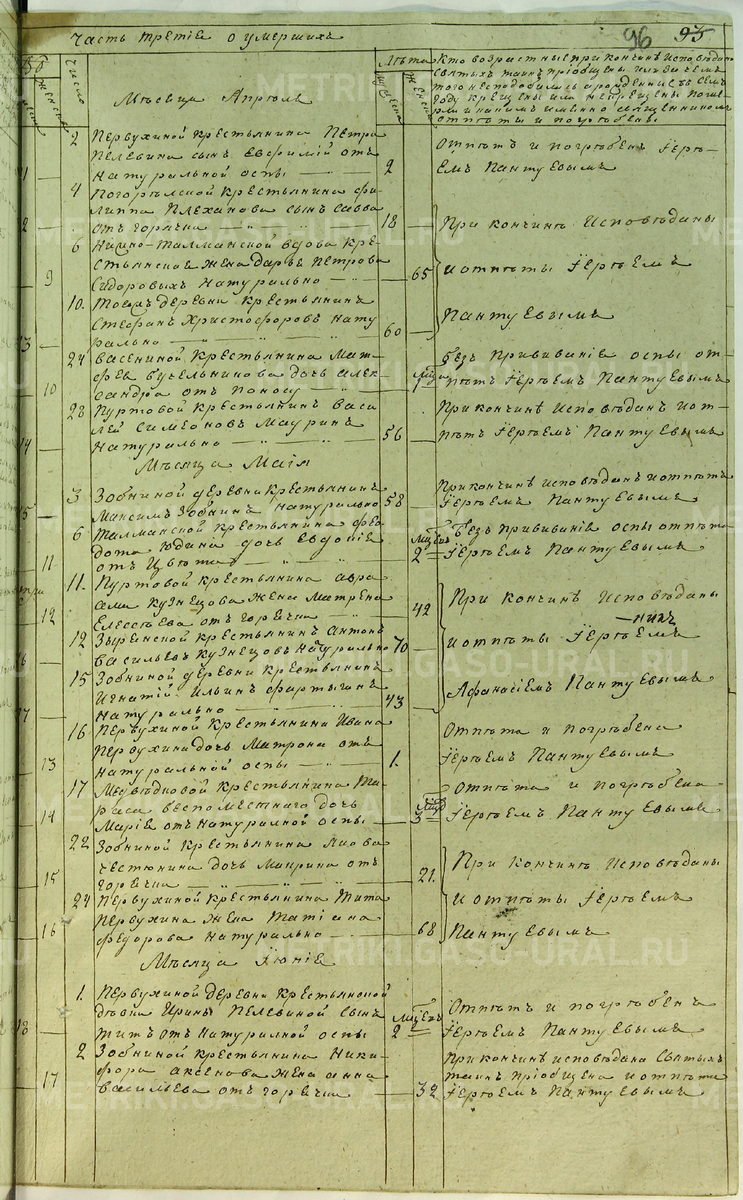 Часть третіе о умершихъ
96 95
Числа
Лѣта
Кто возрастные при кончинѣ исповѣданы
святыхъ таинъ пріобщены или за чемъ
того несподобились а рожденныя въ семъ
году крещены или некрещены
и именно священникомъ
отпѣты и погребены
Мѣсяца Апрѣля
2 Первухиной крестьянина Петра
Пелевина сынъ Евфимій отъ
1 Натуральной оспы — 2
Отпѣтъ и погребенъ Іере-
емъ Пантуевымъ
4 Погорѣлской крестьянина Фи-
липпа Плеханова сынъ Савва
2 отъ горячки — 18
При кончинѣ Исповѣданы
6 Нижно-Талманской вдова кре-
стьянская жена Дарья Петрова
9 Сидоровыхъ Натурально — 65
и отпѣты Іереемъ
10. Тоежъ деревни крестьянинъ
Стефанъ Христофоровъ нату
13 рально — 60
Пантуевымъ
24 Васениной крестьянина Мат-
фея Бучельникова дочь Алек-
10 сандра отъ поносу —
Безъ прививанія оспы от-
пѣтъ Іереемъ Пантуевымъ
28 Пуртовой крестьянинъ Васи
лей Симеоновъ Мауринъ
14 Натурально — 56
При кончинѣ Исповѣданъ и от-
пѣтъ Іереемъ Пантуевымъ
Мѣсяца Маія
3 Зобниной деревни крестьянинъ
15 Максимъ Зобнинъ натурально 58
При кончинѣ исповѣданъ и отпѣтъ
Іереемъ Пантуевымъ
6 Талманской крестьянина Фео
дота Юдина дочь Евдокія
11 отъ Цвѣта — 2
Безъ прививанія оспы отпѣта
Іереемъ Пантуевымъ
11. Пуртовой крестьянина Авра
ама Кузнецова жена Матрена
12 Елесеева отъ горячки 42
При кончинѣ Исповѣданы
12 Зыренской крестьянинъ Антонъ
16 Васильевъ Кузнецовъ натурально 70
и отпѣты Іереемъ
15 Зобниной деревни крестьянинъ
Игнатій Ильинъ Фартыгинъ
17 Натурально — 43
Афанасіемъ Пантуевымъ
16. Первухиной крестьянина Ивана
Первухина дочь Матрона отъ
13 натуральной оспы — 1.
Отпѣта и погребена
Іереемъ Пантуевымъ
17 Медвѣдковой крестьянина Та-
раса Беспоместнаго дочь
14 Марія отъ Натуралной оспы — 3
отпѣта и погребена
Іереемъ Пантуевымъ
22 Зобниной крестьянина
дочь Маврина отъ
15 горячки — 21.
При кончинѣ Исповѣданы
24 Первухиной крестьянина Тита
Первухина жена Татіана
16 Федорова Натурально — 68
и отпѣты Іереемъ
Пантуевымъ
Мѣсяца Іюніе
1. Первухиной деревни крестьянской
дѣвки Ирины Пелевиной сынъ
18 Титъ отъ Натуралной оспы 2
Отпѣтъ и погребенъ
Іереемъ Пантуевымъ
2 Зобниной крестьянина Ники-
фора Аксенова жена Анна
17 Васильева отъ горячки — 32
При кончинѣ исповѣдана Святыхъ
таинъ пріобщена и отпѣта
Іереемъ Пантуевымъ